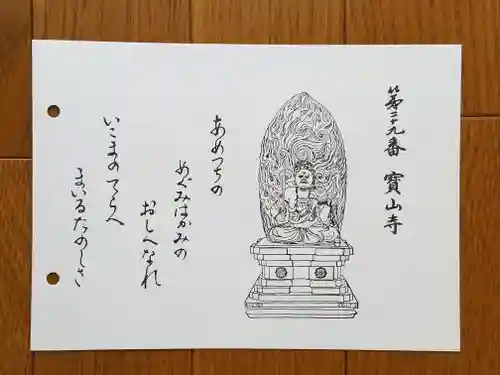 第三十九番 寶山寺
あめつちの
めぐみはかみの
おしへなれ
いこまのてらへ
まいるたのしさ